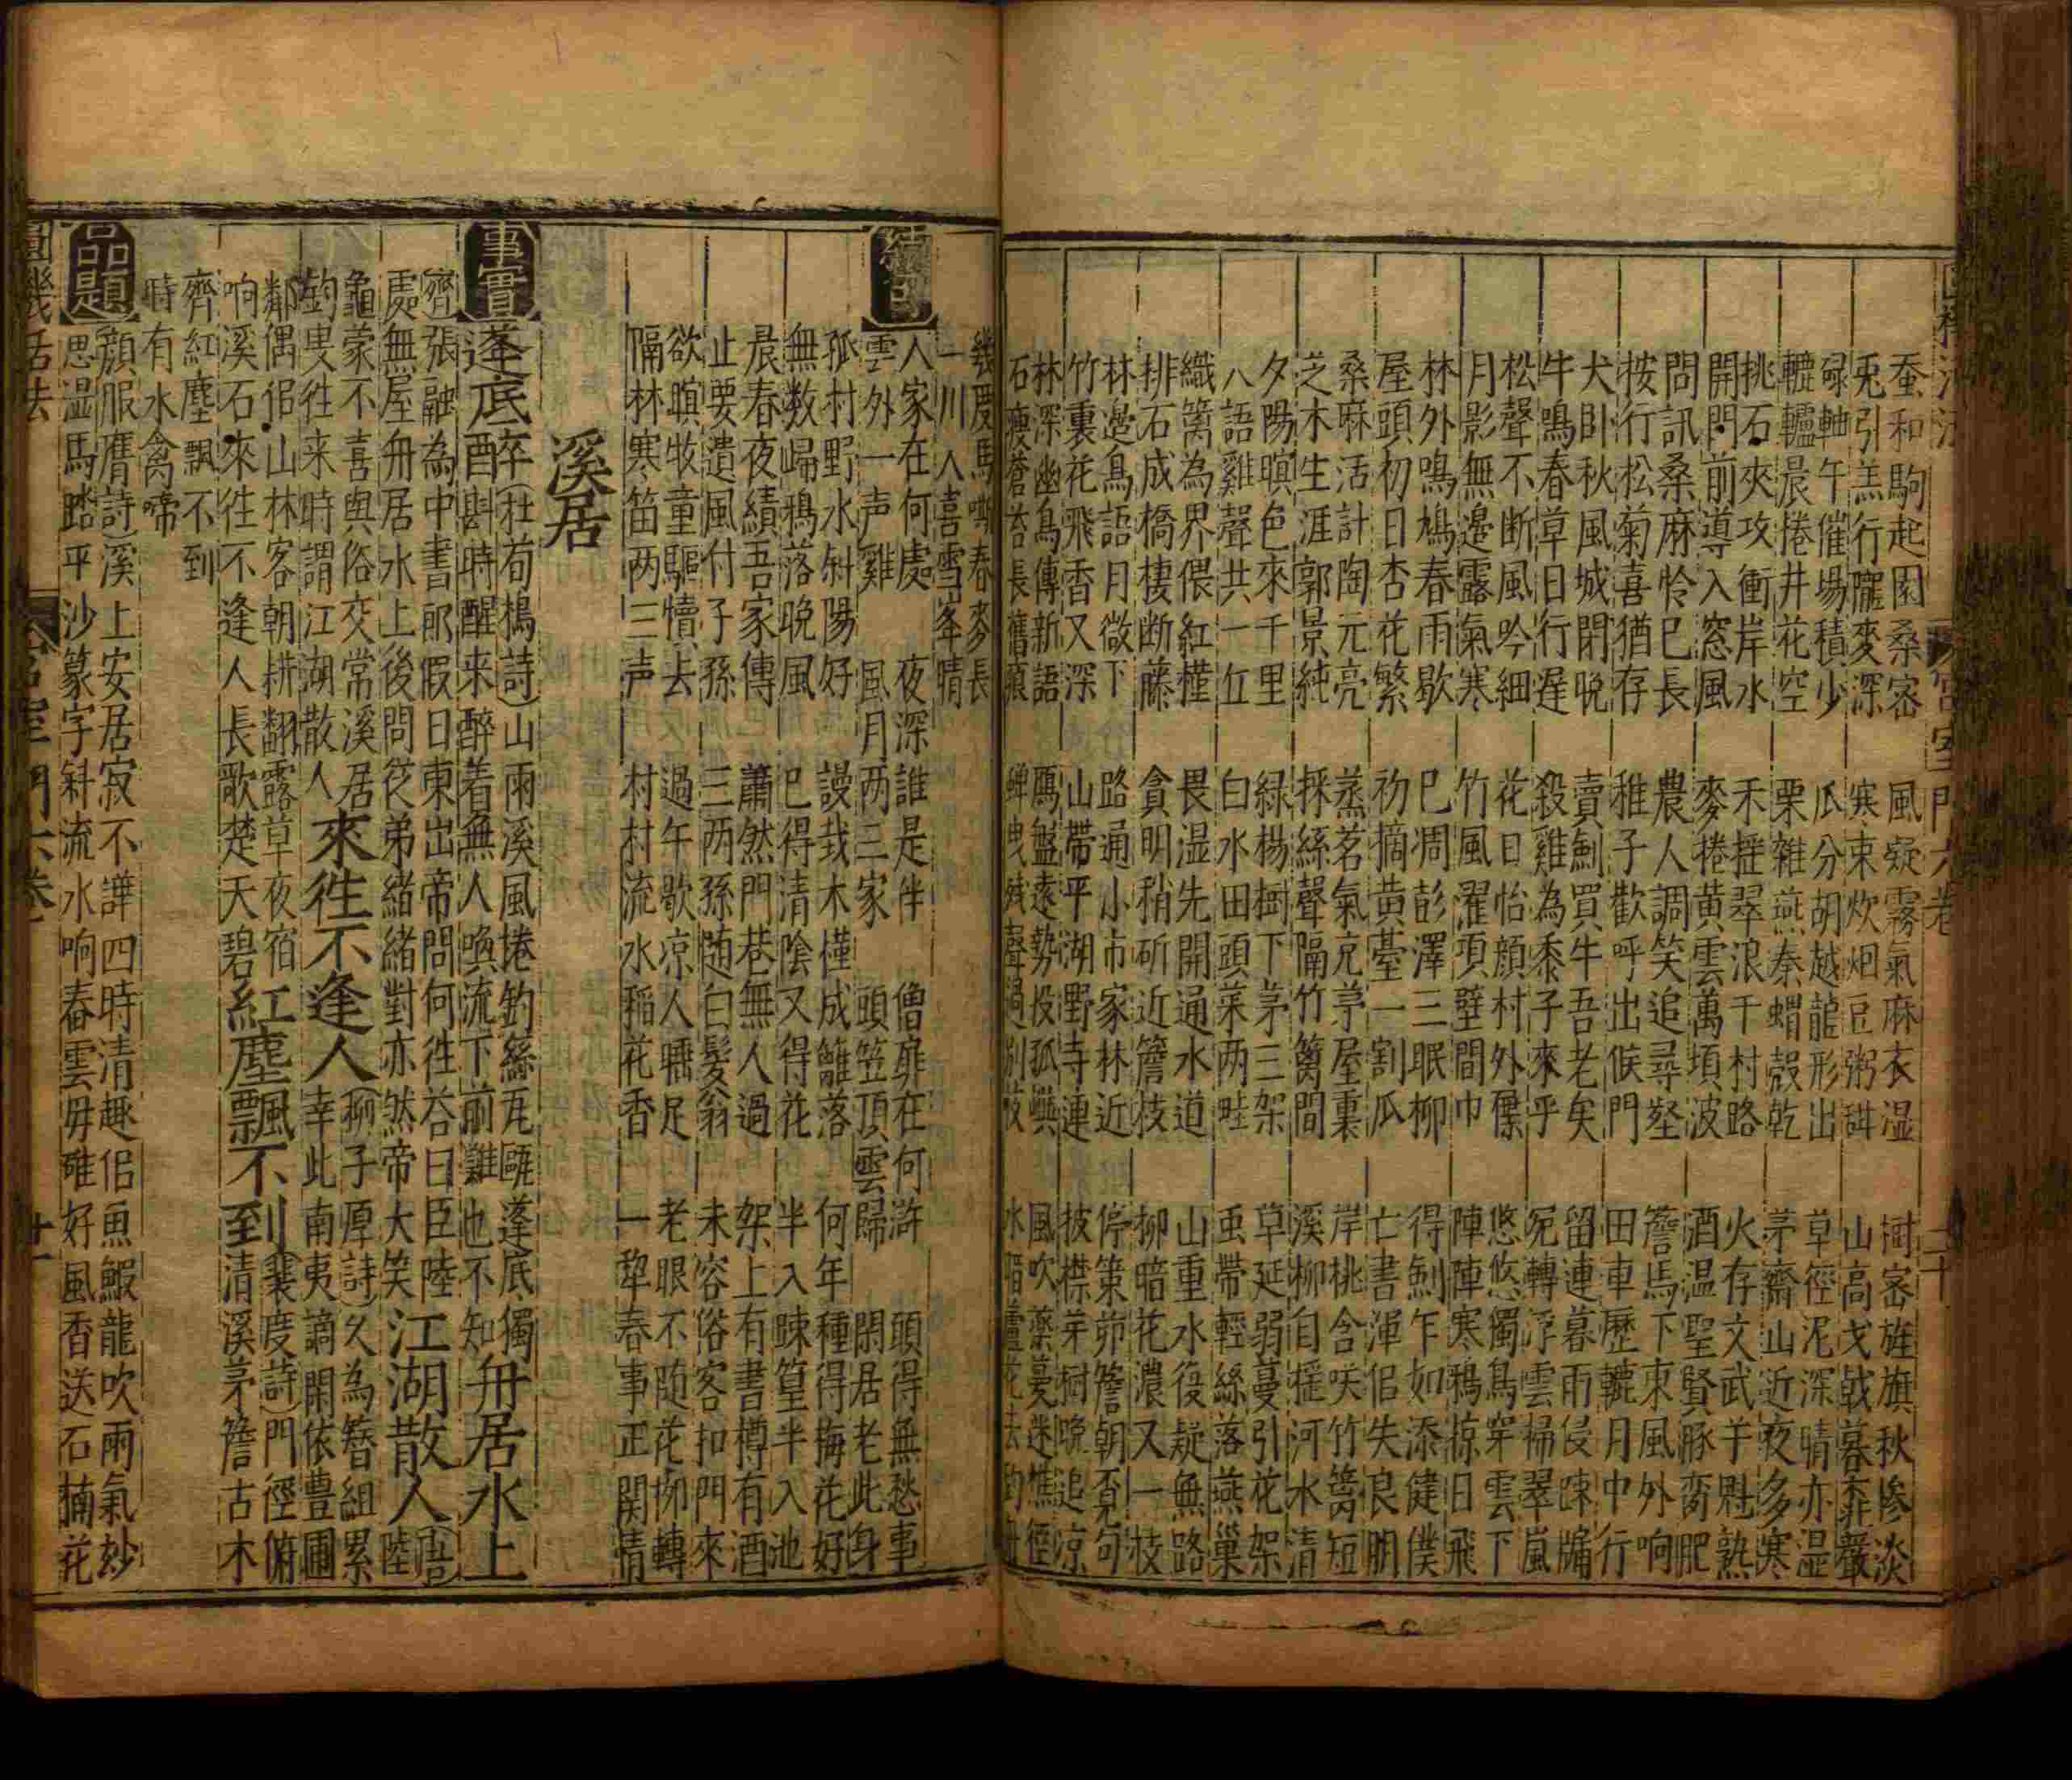 蚕和駒起園桑宻　風疑霧氣麻衣湿　樹宻旌旗秋慘淡
兎引羔行隴麥深　寒束炊烟豆粥甜　山高戈戟暮霏嚴
碌軸午催場積少　瓜分胡越龍形出　草徑泥深晴亦湿
轆轤晨捲井花空　栗雜燕秦蝟殻乾　茅齋山近夜多寒
挑石夾攻衝岸水　禾挂翠浪千村路　火存文武芋魁熟
開門前導入窓風　麥捲黄雲萬頃波　酒温聖賢豚臠肥
問訊桑麻怜巳長　農人調笑追尋壑　簷馬下来風外响
按行松菊喜猶存　稚子歡呼出候門　田車歷轆月中行
犬臥秋風城閉晚　賣劍買牛吾老矣　留連暮雨侵踈牖
牛鳴春草日行遲　殺雞為黍子來乎　宛轉浮雲掃翠嵐
松聲不断風吟細　花日怡顔村外傑　悠悠獨鳥穿雲下
月影無邊露氣寒　竹風濯項壁間巾　陣陣寒鴉掠日飛
林外鳴鳩春雨歇　巳凋彭澤三眠柳　得劍乍如添健僕
屋頭初日杏花繁　初摘黄臺一割瓜　亡書渾侶失良朋
桑麻活計陶元亮　蒸茗氣京茅屋裏　岸桃含咲竹籬短
芝木生涯郭景純　採絲聲隔竹籬間　溪柳自摇河水清
夕陽暝色來千里　緑楊樹下茅三架　草延弱蔓引花架
八語雞聲共一丘　白水田頭菜两畦　虫帶輕絲落燕巢
織篱為界偎紅槿　畏湿先開通水道　山重水復疑無路
排石成橋棲断藤　貪明稍斫近簷枝　柳暗花濃又一枝
林邉鳥語月微下　路通小市家林近　停策茆簷朝覓句
竹裏花飛香又深　山帶平湖野寺連　披襟芽樹晚追凉
林深幽鳥傳新語　鴈盤遠勢投孤嶼　風吹藥蔓迷樵徑
石瘦蒼苔長舊痕
幾度馬嘶春麥長
一川人喜雪峯晴
續句
人家在何處　夜深誰是伴　僧扉在何滸　頭得無愁事
雲外一声雞　風月两三家　頭笠頂雲歸　閑居老此身
孤村野水斜陽好　謾栽木槿成籬落　何年種得梅花好
無数歸鴉落晚風　巳得清陰又得花　半入踈篁半入池
晨春夜績吾家傳　蕭然門巷無人過　架上有書樽有酒
止要遺風付子孫　三两孫随白髮翁　未容俗客扣門來
欲暝牧童驅犢去　過午歇凉人瞧足　老眼不随花柳轉
隔林寒笛两三声　村村流水稲花香　一犂春事正関情
溪居
事實
蓬底醉(杜荀鶴詩)山雨溪風捲釣絲瓦甌蓬底獨
酣斟時醒来醉着無人喚流下前難也不知舟居水上
(齊)張融為中書郎假日東出帝問何徃荅曰臣陸
處無屋舟居水上後問從弟緒緒對亦然帝大笑江湖散人(唐)陸
龜蒙不喜與俗交常溪居
釣叟徃来時謂江湖散人來徃不逢人(柳子厚詩)久為簪組累幸此南夷謫閑依豊圃
鄰偶侣山林客朝耕翻露草夜宿
响溪石來徃不逢人長歌楚天碧紅塵飄不到(裴度詩)門徑俯清溪茅簷古木
齊紅塵飄不到
時有水禽啼
品題
(顔服膺詩)溪上安居寂不譁四時清趣侣魚鰕龍吹雨氣妙
思湿馬踏平沙篆字斜流水响春雲毋碓好風香送石楠花